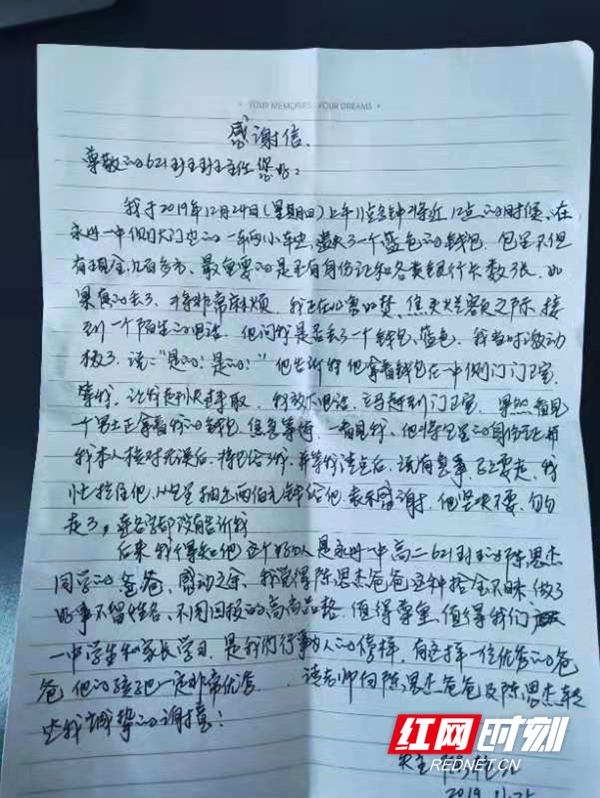 YOUR MEMORIES YOUR DREAMS
感谢信.
尊敬的621班班主任您好:
我于2019年12月24日(星期四)上午11点多钟将近12点的时候、在
永州一中侧大门边的一辆小车旁,遗失了一个蓝色的钱包,包里不但
有现金几百多币、最重要的是里有身份证和各类银行卡数张,如
果真的丢了、将非常麻烦,我正在心急如焚、焦头烂额之际,接
到一个陌生的电话,他问我是否丢了一个钱包、蓝色,我当时激动
极了,说:"是的!是的!"他告诉我他拿着钱包在一中侧门门卫室
等我,让我赶快去拿取,我放下电话,立马赶到门卫室,果然看见
一个男士正拿着我的钱包,焦急等待,一看见我、他将包里的身份证与
我本人核对无误后、将包给了我,并等我清点后,说有急事,马上要走,我
忙拦住他,从包里抽出两佰元钱给他,表示感谢,他坚决不要,匆匆
走了,连名字都没告诉我
后来我得知他这个好心人是永州一中高二621班的陈思杰
同学的爸爸,感动之余、我觉得陈思杰爸爸这种拾金不昧、做了
好事不留姓名、不用回报的高尚品格,值得尊重,值得我们
一中学生和家长学习,是我们行事为人的榜样,有这样一位优秀的爸
爸,他的孩子也一定非常优秀.请老师向陈思杰爸爸及陈思杰转
达我诚挚的谢意!
失主
2019.
红网时刻
REDNET.CN